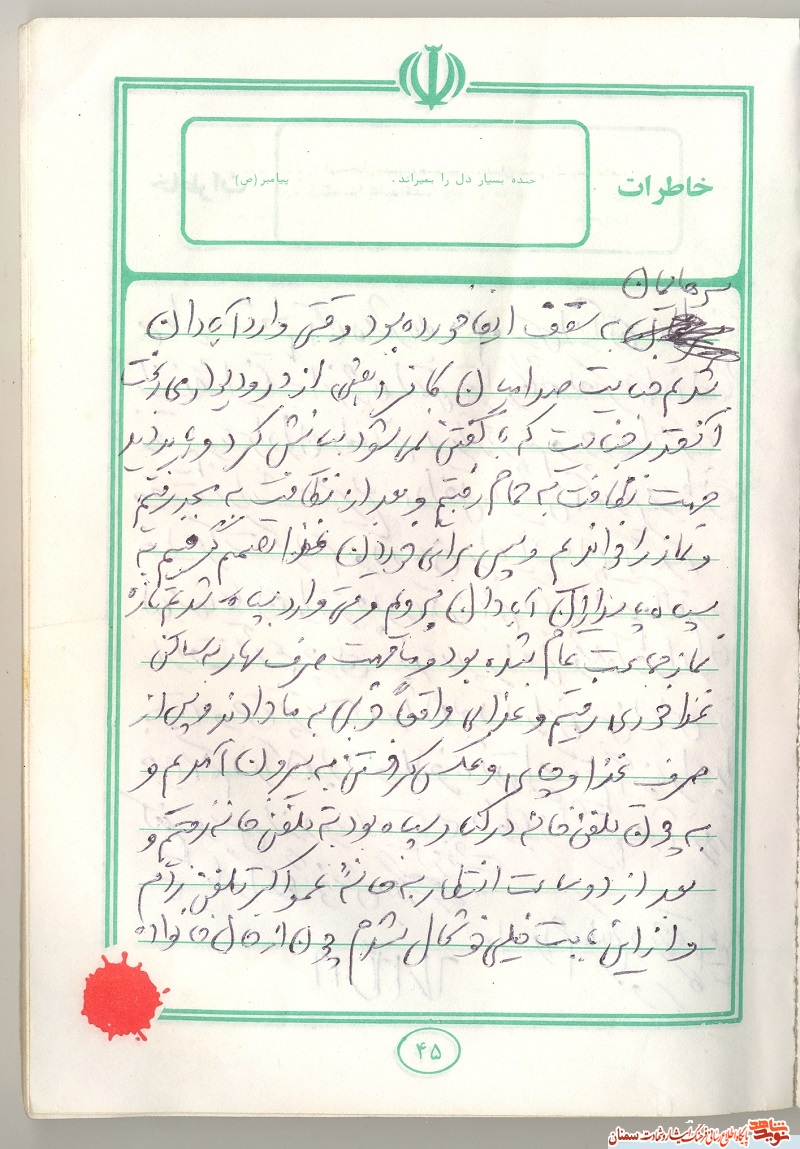 خاطرات
خنده بسیار دل را بمیراند. پیامبر(ص)
سرهایمان
به سقف ایفا خورده بود وقتی وارد آبادان
شدیم جنایت صدامیان کافر از در و دیوار می ریخت
آنقدر جنایت که با گفتن نمی شود بیانش کرد و باید دید
جهت نظافت به حمام رفتیم و بعد از نظافت به مسجد رفتیم
و نماز را خواندیم و سپس برای خوردن غذا تصمیم گرفتیم به
سپاه پاسداران آبادان برویم وقتی وارد سپاه شدیم تازه
نماز جماعت تمام شده بود و ما جهت صرف نهار به سالن
غذاخوری رفتیم و غذای واقعاً خوبی به ما دادند و پس از
صرف غذا و چای و عکس گرفتن به بیرون آمدیم و
به چون تلفن خانه در کنار سپاه بود به تلفن خانه رفتیم و
بعد از دو ساعت انتظار به خانه عمو اکبر تلفن زدم
و از این بابت خیلی خوشحال شدم چون از حال خانواده
۴۵
نوید شاهد
پایگاه اطلاع رسانی فرهنگ ایثار و شهادت سمنان